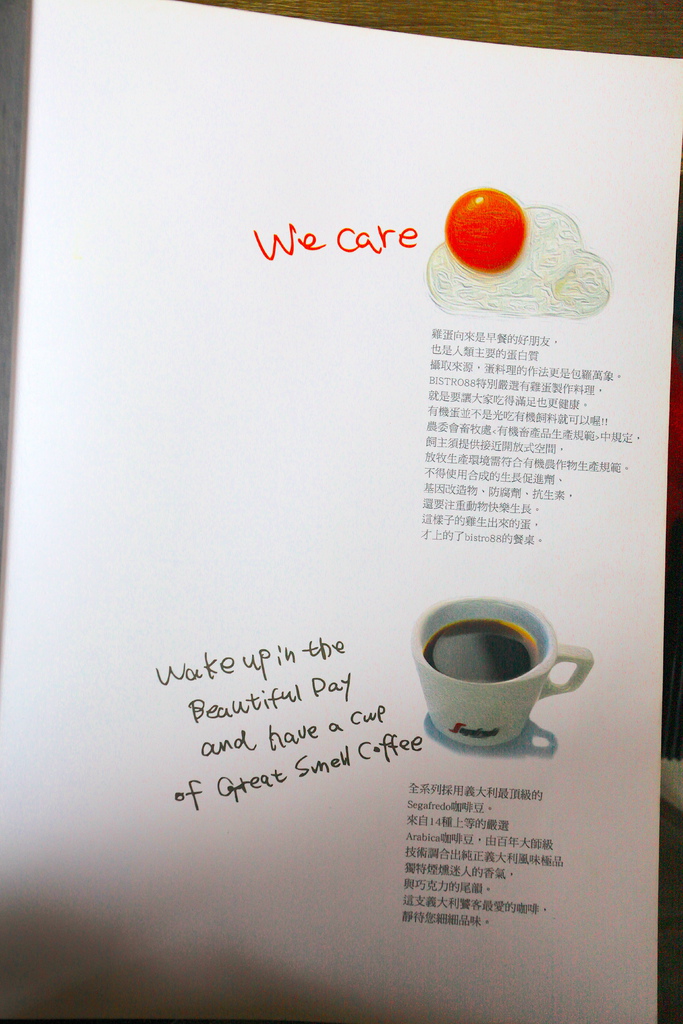 We care
雞蛋向來是早餐的好朋友，
也是人類主要的蛋白質
攝取來源，蛋料理的作法更是包羅萬象。
BISTRO88特別嚴選有雞蛋製作料理，
就是要讓大家吃得滿足也更健康。
有機蛋並不是光吃有機飼料就可以喔!!
農委會畜牧處<有機畜產品生產規範>中規定，
飼主須提供接近開放式空間，
放牧生產環境需符合有機農作物生產規範。
不得使用合成的生長促進劑、
基因改造物、防腐劑、抗生素，
還要注重動物快樂生長。
這樣子的雞生出來的蛋，
才上的了bistro88的餐桌。
Wake up in the
Beautiful Day
and have a cup
of Great Smell Coffee
全系列採用義大利最頂級的
Segafredo咖啡豆。
來自14種上等的嚴選
Arabica咖啡豆，由百年大師級
技術調合出純正義大利風味極品
獨特煙燻迷人的香氣，
與巧克力的尾韻。
這支義大利饕客最愛的咖啡，
靜待您細細品味。